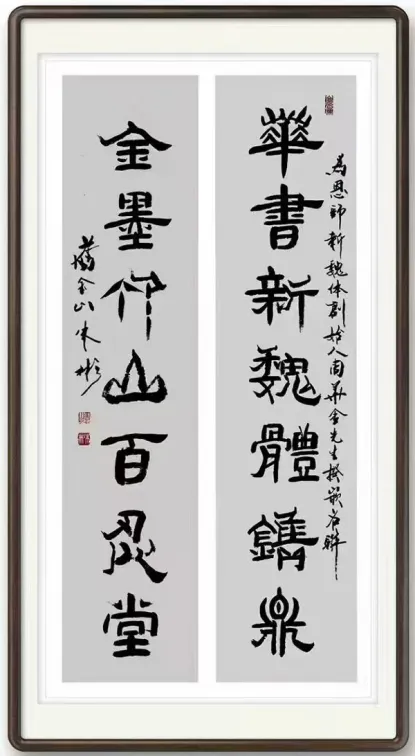 華書新魏體鐫鼎
為恩師新魏体創始人華金先生撰嵌名聯
金墨竹山百忍堂
金山朱彬